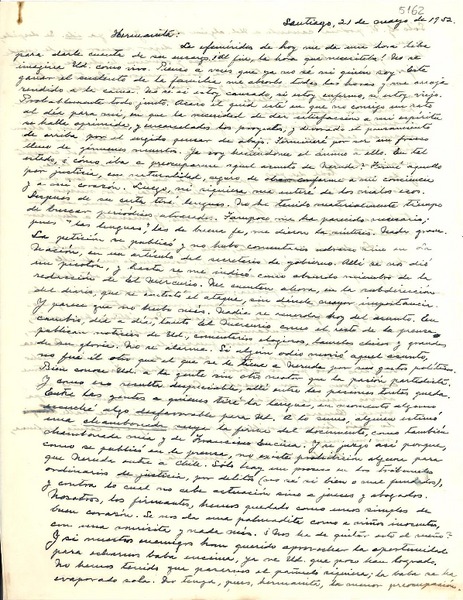 5162
Santiago, 21 de mayo de 1952.
Hermanita:
La efemérides de hoy me da una hora libre
para darle cuenta de su encargo. ¡Al fin, la hora que necesitaba! No se
imagina Ud. cómo vivo. Pienso a veces que ya no sé ni quien soy. Esto
ganar el sustento de la familia me absorbe todas las horas y me arroja
rendido a la cama. No sé si estoy cansado, si estoy enfermo, si estoy viejo.
Probablemente todo junto. Acaso el quid esté en que no consigo un rato
al día para mí, en que la necesidad de dar satisfacción a mi espíritu
se halla oprimida, y encarcelados los proyectos, y
de arriba por el tejido pensar de abajo. Terminaré por ser un frasco
lleno de gérmenes muertos. Ya voy haciéndome el ánimo a ello. En tal
estado, ¿cómo iba a preocuparme aquel asunto de Neruda? Firmé aquello
por justicia, con naturalidad, seguro de obrar conforme a mi conciencia
y a mi corazón. Luego, ni siquiera me enteré de los malos ecos.
Después de su carta tiré lenguas. No he tenido materialmente tiempo
de buscar periódicos atrasados. Tampoco me ha parecido necesario;
pues "las lenguas", las de buena fe, me dieron la síntesis. Nada grave.
La petición se publicó y no hubo comentario adverso sino en La
Nación, en un artículo del secretario de gobierno. Allí se nos dió
un picotón, y hasta se me indicó como absurdo miembro de la
redacción de El Mercurio. Me cuentan ahora, en la subdirección
del diario, que se contestó el ataque, sin darle mayor importancia.
Y parece que no hubo más. Nadie se acuerda hoy del asunto. En
cambio, día a día, tanto El Mercurio como el resto de la prensa
publican noticias de Ud., comentarios elogiosos, hechos chicos y grandes
de su gloria. No se alarme. Si algún odio movió aquel asunto,
no fué él otro que el que se le tiene a Neruda por sus gestos políticos.
Bien conoce Ud. a la gente sin otro motor que la pasión partidista.
Y como eso resulta despreciable, allí entre las personas tontas queda.
Entre las gentes a quienes tiré la lengua, en momento alguno
escuché algo desfavorable para Ud. A lo sumo, alguien estimó
una chambonada suya la firma del documento, como también
chambonada mía y de Francisco Encina. Y se juzgó así porque,
como se publicó en la prensa, no existe prohibición alguna para
que Neruda entre a Chile. Sólo hay un proceso en los Tribunales
ordinarios de justicia, por delitos (no sé ni bien o mal fundados),
y contra lo cual no cabe actuación sino a jueces y abogados.
Nosotros, los firmantes, hemos quedado como unos simples de
buen corazón. Se nos da una palmadita como a niños inocentes,
con una sonrisita y nada más. ¿Nos ha de quitar esto el sueño?
Y si nuestros enemigos han querido aprovechar la oportunidad
para echarnos baba encima, ya ve Ud. que poco han logrado.
No hemos tenido que pasarnos el pañuelo siquiera; la baba se ha
evaporado sola. No tenga, pues, hermanita, la menor preocupación.